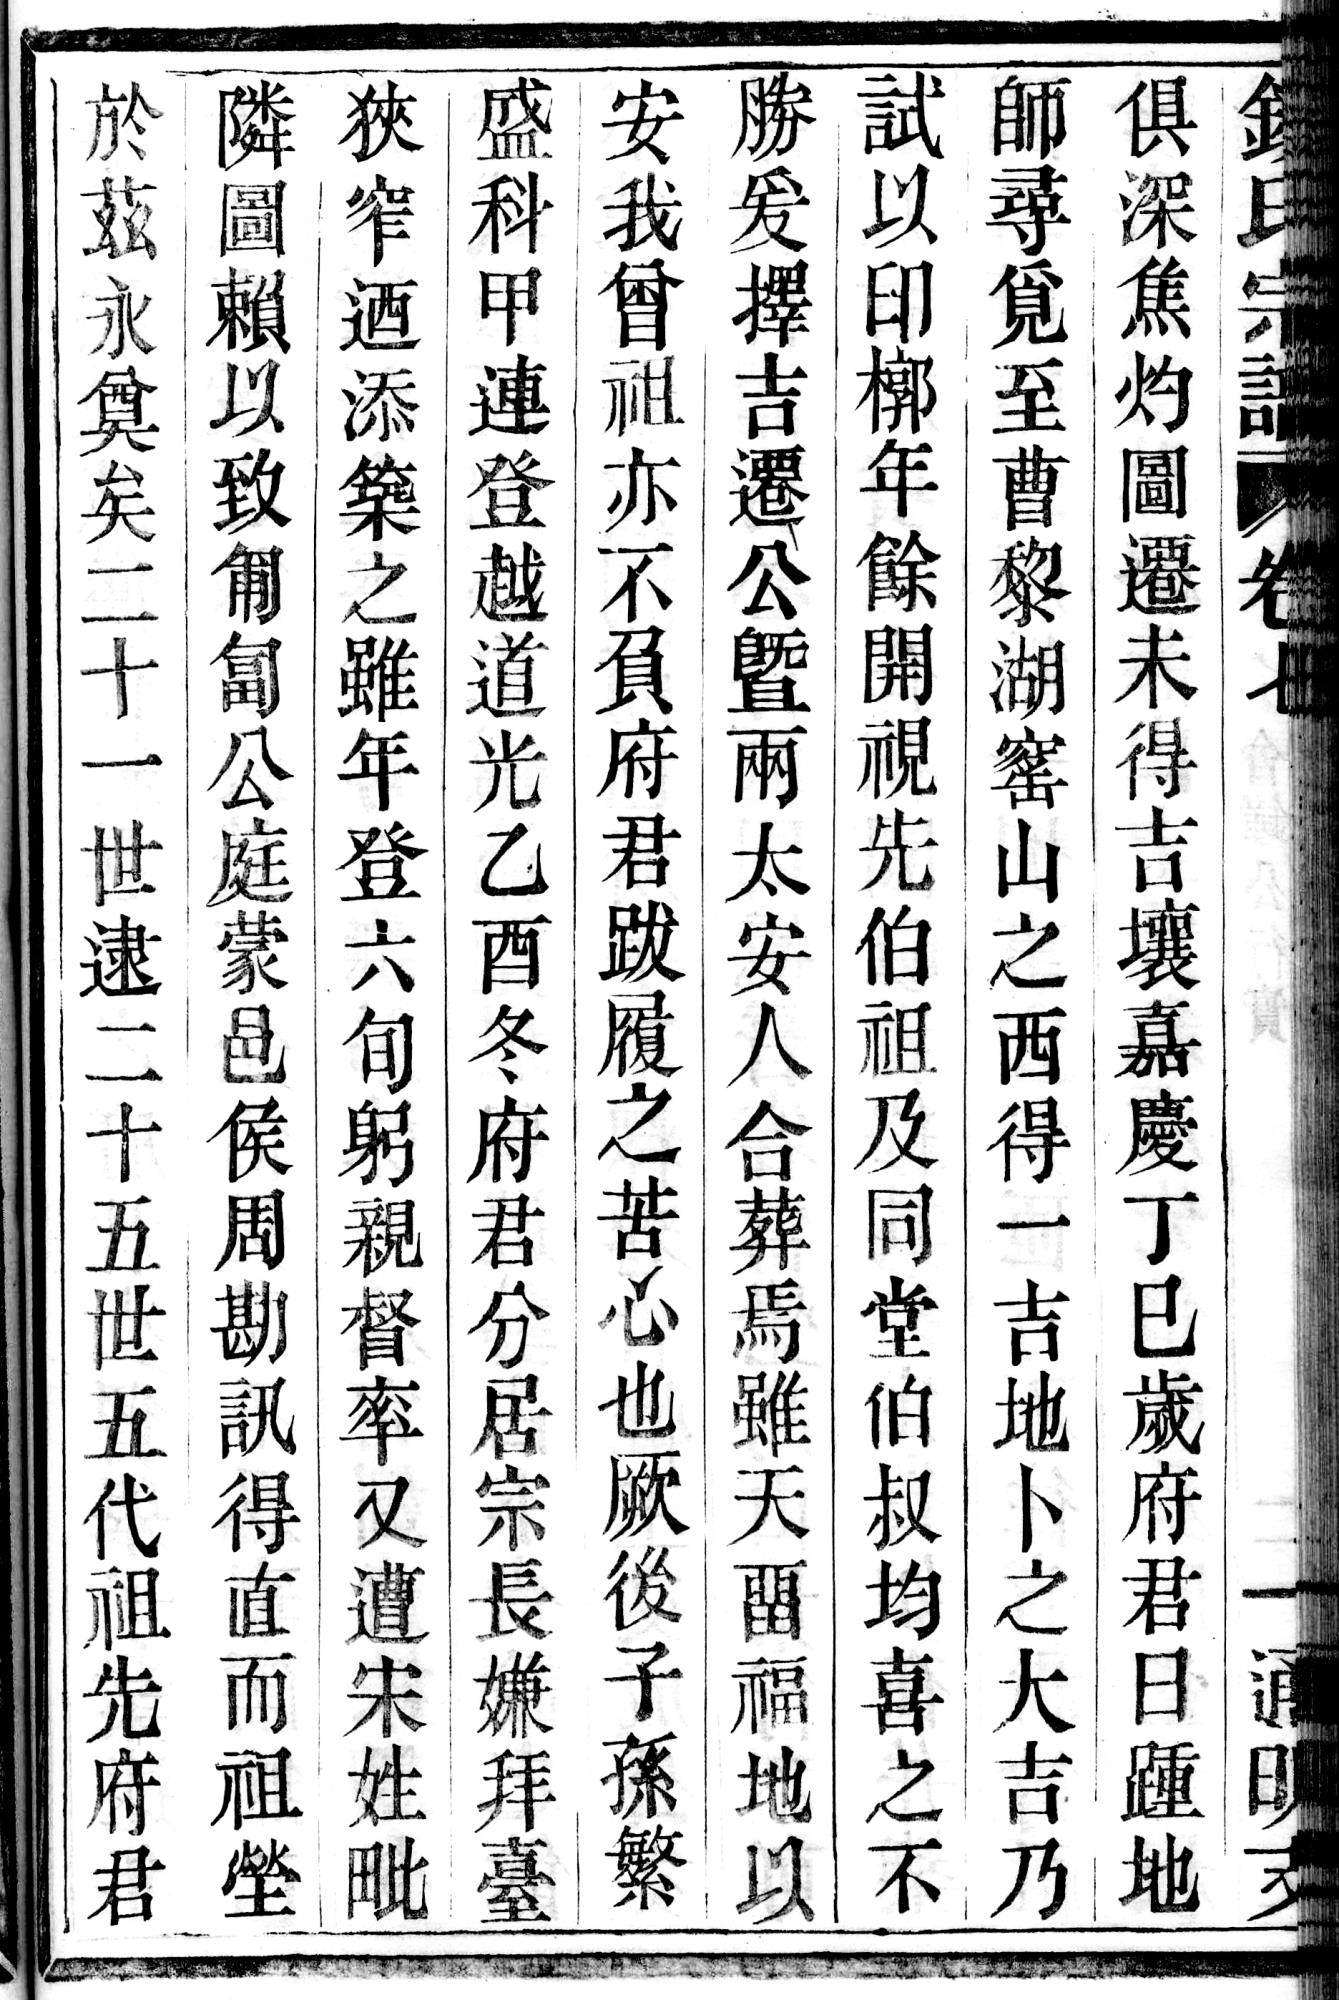 氏宗譜 卷七
俱深焦灼圖遷未得吉壤嘉慶丁巳歲府君日踵地
師尋覓至曹黎湖窰山之西得一吉地卜之大吉乃
試以印槨年餘開視先伯祖及同堂伯叔均喜之不
勝爰擇吉遷公曁兩太安人合葬焉雖天畱福地以
安我曾祖亦不負府君跋履之苦心也厥後子孫繁
盛科甲連登越道光乙酉冬府君分居宗長嫌拜臺
狹窄迺添築之雖年登六旬躬親督率又遭宋姓毗
隣圖賴以致匍匐公庭蒙邑侯周勘訊得直而祖塋
於茲永奠矣二十一世逮二十五世五代祖先府君